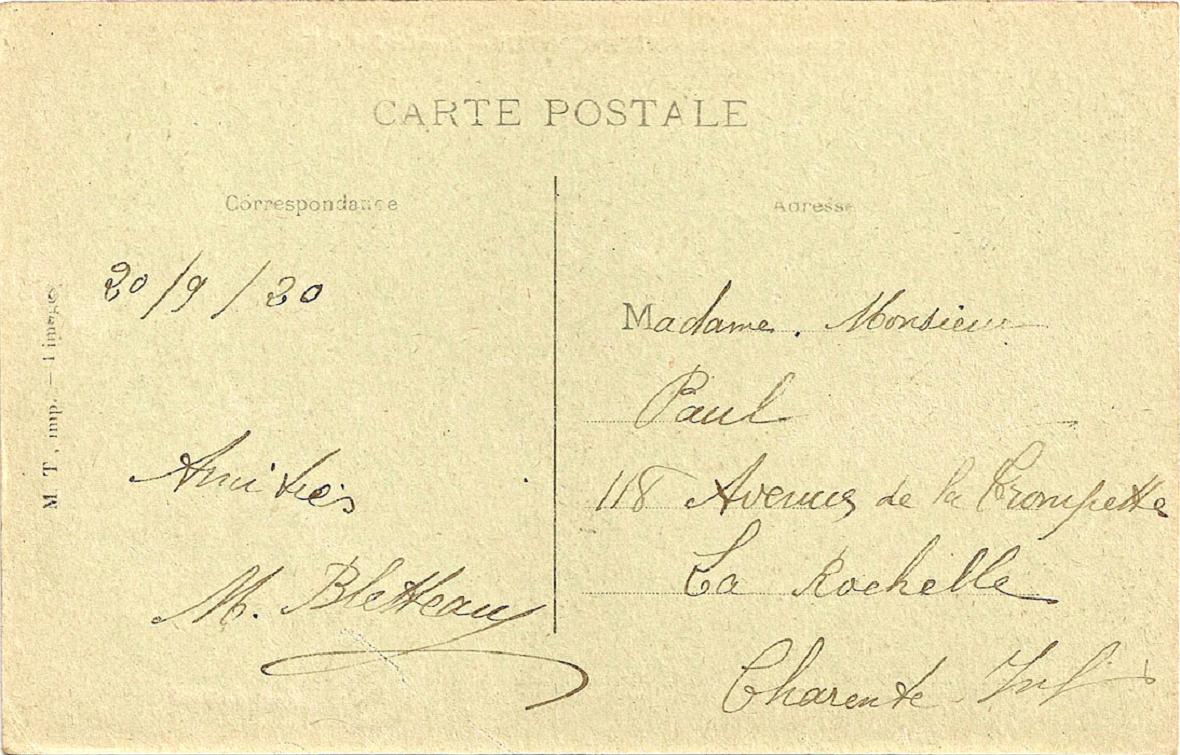 CARTE POSTALE
Correspondance
Adresse
20/9/20
Amitiés
M. Bletteau
Madame. Monsieur
Paul
118 Avenue de la Trompette
La Rochelle
Charente Inf
M. T., imp. — Limoges